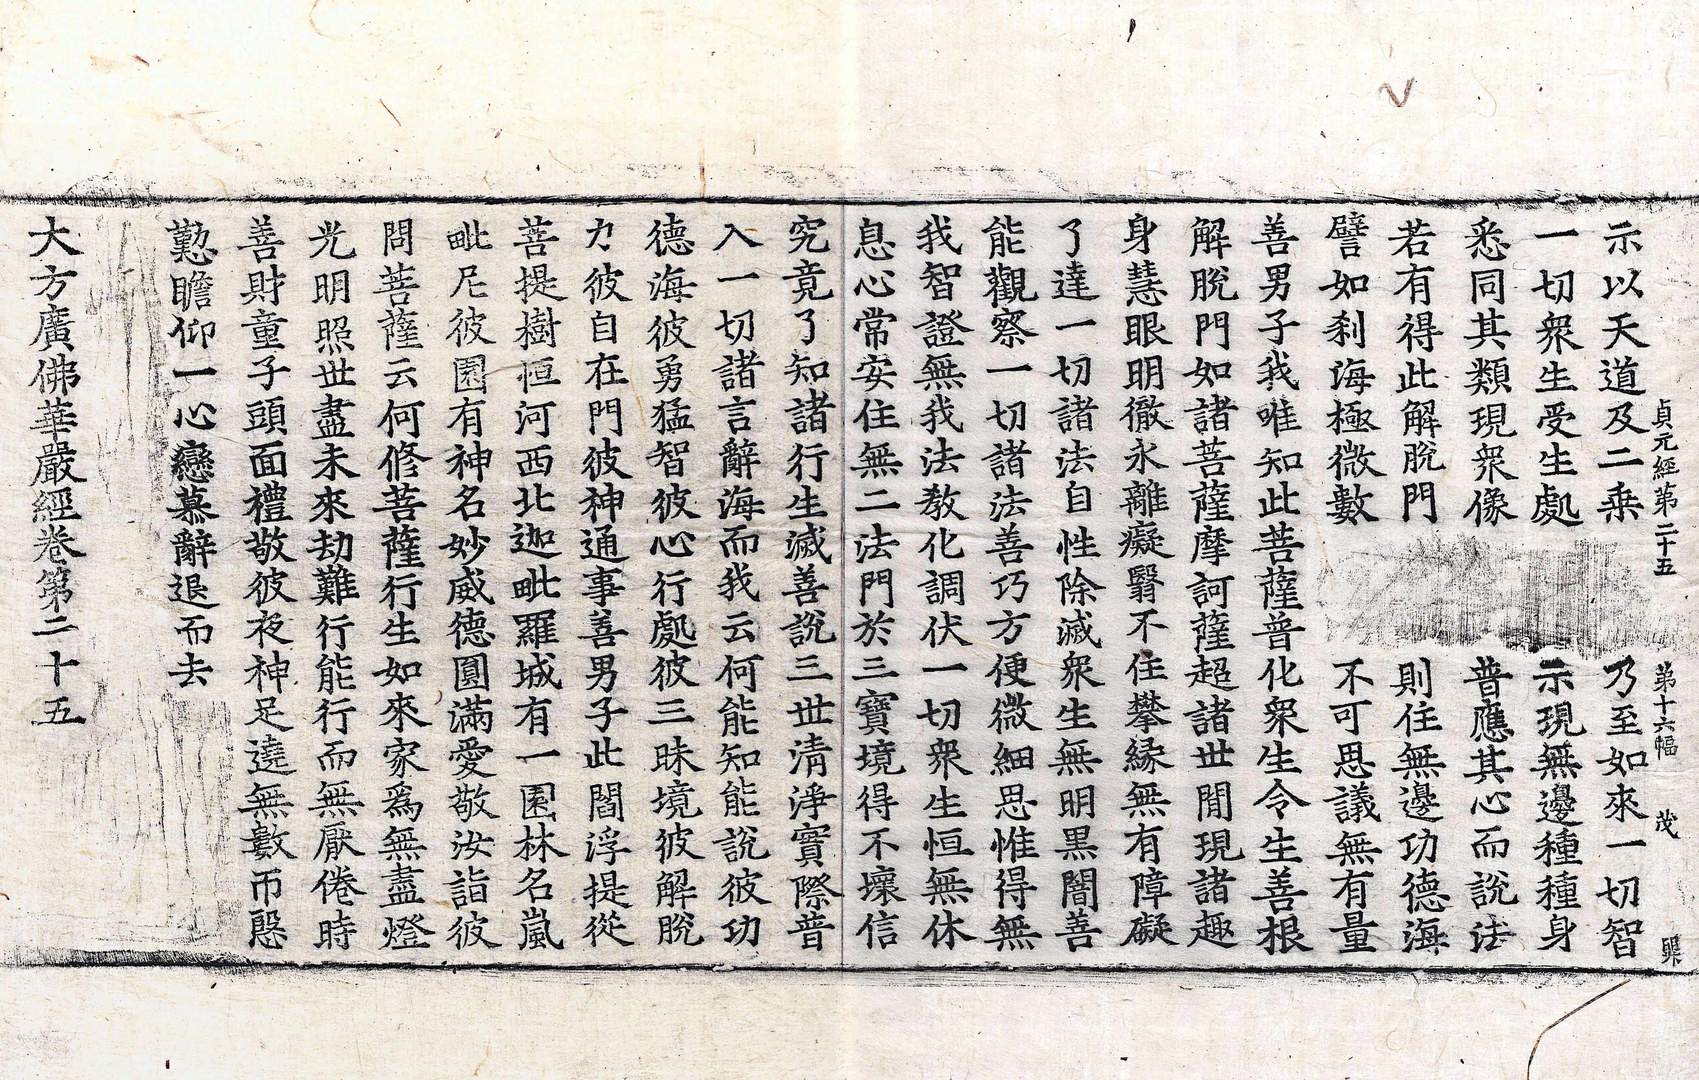 貞元經第二十五 第十六幅 茂
示以天道及二乘 乃至如來一切智
一切衆生受生處 示現無邊種種身
悉同其類現衆像 普應其心而說法
若有得此解脫門 則住無邊功德海
譬如刹海極微數 不可思議無有量
善男子我唯知此菩薩普化衆生令生善根
解脫門如諸菩薩摩訶薩超諸世閒現諸趣
身慧眼明徹永離癡翳不住攀緣無有障礙
了達一切諸法自性除滅衆生無明黑闇善
能觀察一切諸法善巧方便微細思惟得無
我智證無我法教化調伏一切衆生恒無休
息心常安住無二法門於三寶境得不壞信
究竟了知諸行生滅善說三世淸淨實際普
入一切諸言辭海而我云何能知能說彼功
德海彼勇猛智彼心行處彼三昧境彼解脫
力彼自在門彼神通事善男子此閻浮提從
菩提樹恒河西北迦毗羅城有一園林名嵐
毗尼彼園有神名妙威德圓滿愛敬汝詣彼
問菩薩云何修菩薩行生如來家爲無盡燈
光明照世盡未來劫難行能行而無厭倦時
善財童子頭面禮敬彼夜神足遶無數帀慇
懃瞻仰一心戀慕辭退而去
大方廣佛華嚴經卷第二十五